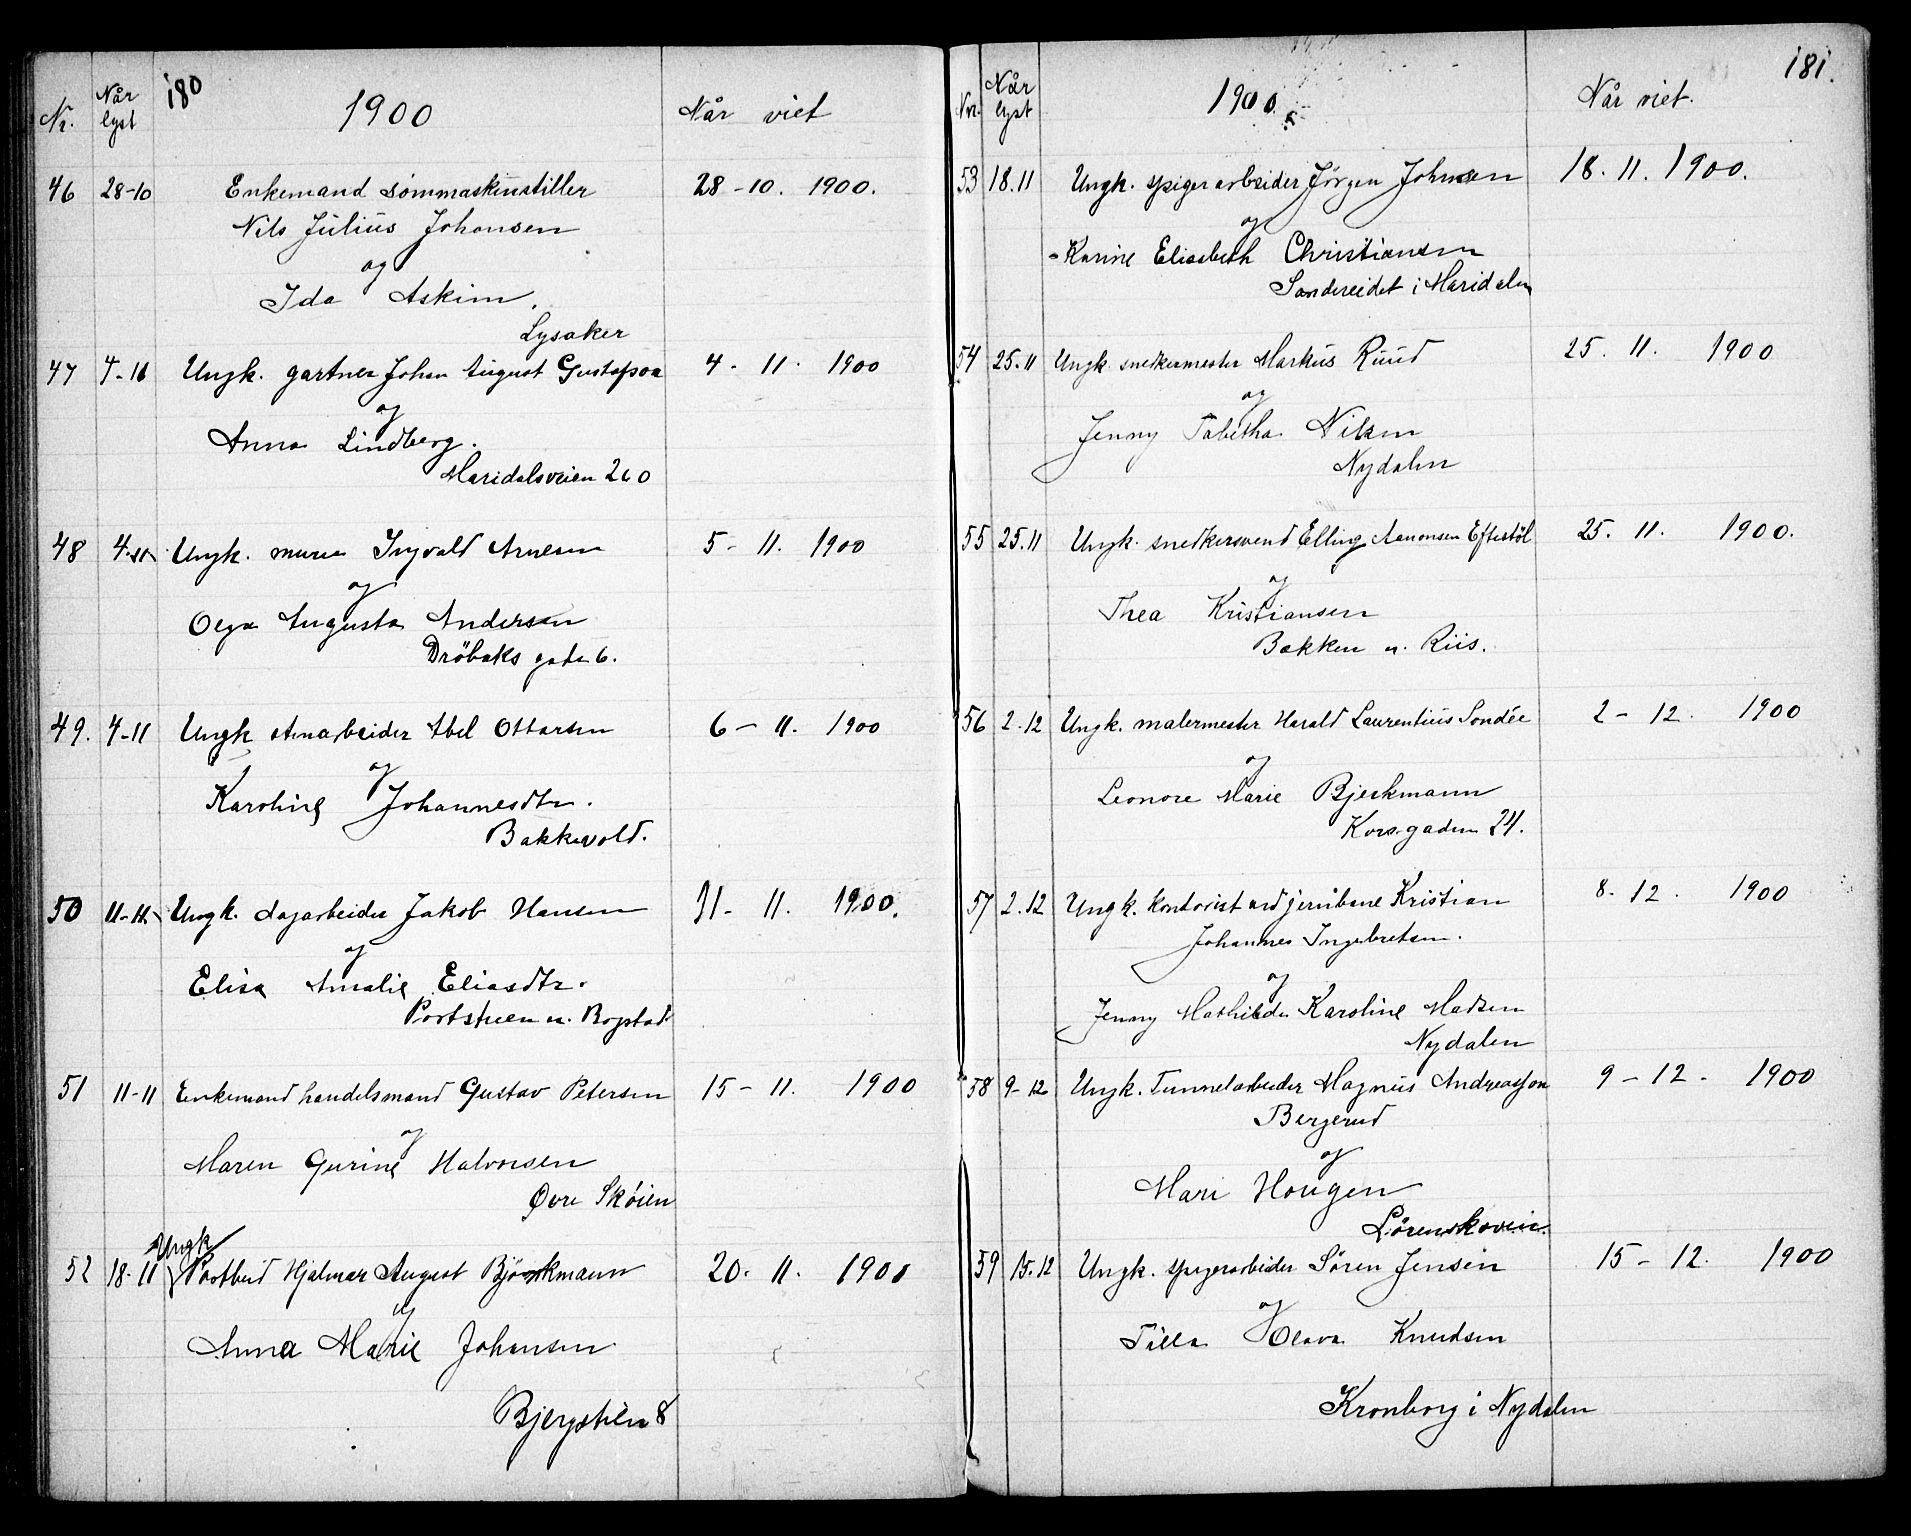 180
Nr. Når lyst 1900 Når viet
46 28-10 Enkemand sömmaskinstiller 28-10. 1900.
Nils Julius Johansen
og
Ida Askim.
Lysaker
47 4-11 Ungk. gartner Johan August Gustafson 4-11. 1900
og
Anna Lindberg.
Maridalsveien 260
48 4-11 Ungk. murer Ingvald Arnesen 5-11. 1900
og
Olga Augusta Andersen
Dröbaks gade 6.
49. 4-11 Ungk Abel Ottarsen 6-11. 1900
og
Karoline Johannesdtr.
Bakkevold.
50 11-11 Ungk. dagarbeider Jakob Hansen 11-11. 1900.
og
Elisa Amalie Eliasdtr.
Portstuen u. Bogstad
51 11-11 Enkemand handelsmand Gustav Petersen 15-11. 1900
og
Maren Gurine Halvorsen
Øvre Skøien
Ungk
52 18-11 Postbud Hjalmar August Björkmann 20. 11. 1900
og
Anna Marie Johansen
Bjergstien 8
181.
Nr. Når lyst 1900. Når viet.
53 18.11 Ungk. spigerarbeider Jørgen Johnsen 18. 11. 1900.
og
Karine Elisabeth Christiansen
Sandereidet i Maridalen
54 25.11 Ungk. snedkermester Markus Ruud 25. 11. 1900
og
Jenny Tabitha Nilsen
Nydalen
55 25.11 Ungk. snedkersvend Elling Aanonsen Eftestöl 25. 11. 1900.
og
Thea Kristiansen
Bakken u. Riis.
56 2.12 Ungk. malermester Harald Laurentius Sondée 2-12. 1900
og
Leonore Marie Bjerkmann
Korsgaden 24.
57 2.12 Ungk. kontorist ved jernbane Kristian 8-12. 1900
Johannes Ingebretsen.
og
Jenny Mathilde Karoline Madsen
Nydalen
58 9-12 Ungk. Tunnelarbeider Magnus Andreasson 9-12. 1900
Bergerud
og
Mari Hougen
Lörenskovein.
59 15.12 Ungk. spigerarbeider Sören Jensen 15-12. 1900
og
Tilla Olava Knudsen
Kronborg i Nydalen